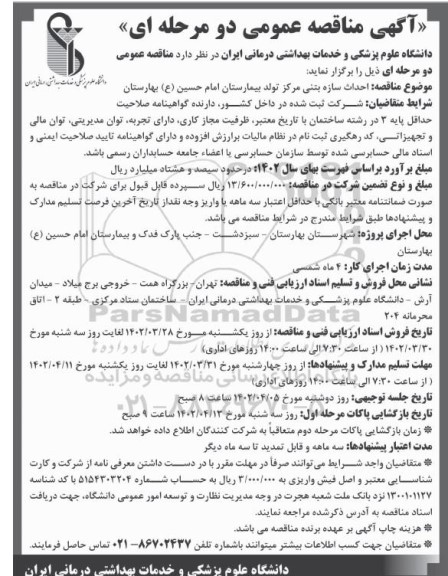 «آگهی مناقصه عمومی دو مرحله ای»
دانشگاه علوم پزشکی و خدمات بهداشتی درمانی ایران در نظر دارد مناقصه عمومی
دو مرحله ای ذیل را برگزار نماید:
موضوع مناقصه: احداث سازه بتنی مرکز تولد بیمارستان امام حسین (ع) بهارستان
شرایط متقاضیان: شرکت ثبت شده در داخل کشور، دارنده گواهینامه صلاحیت
حداقل پایه ۳ در رشته ساختمان با تاریخ معتبر، ظرفیت مجاز کاری، دارای تجربه، توان مدیریتی، توان مالی
و تجهیزاتی، کد رهگیری ثبت نام در نظام مالیات برارزش افزوده و دارای گواهینامه تایید صلاحیت ایمنی و
اسناد مالی حسابرسی شده توسط سازمان حسابرسی یا اعضاء جامعه حسابداران رسمی باشد.
مبلغ برآورد براساس فهرست بهای سال ۱۴۰۲: درحدود سیصد و هشتاد میلیارد ریال
مبلغ و نوع تضمین شرکت در مناقصه: ۱۳/۶۰۰/۰۰۰/۰۰۰ ریال سپرده قابل قبول برای شرکت در مناقصه به
صورت ضمانتنامه معتبر بانکی با حداقل اعتبار سه ماهه یا واریز وجه نقداز تاریخ آخرین فرصت تسلیم مدارک
و پیشنهادها طبق شرایط مندرج در شرایط مناقصه می باشد.
محل اجرای پروژه: شهرستان بهارستان - سبزدشت - جنب پارک فدک و بیمارستان امام حسین (ع)
بهارستان
مدت زمان اجرای کار: ۴ ماه شمسی
نشانی محل فروش و تسلیم اسناد ارزیابی فنی و مناقصه: تهران-بزرگراه همت - خروجی برج میلاد - میدان
آرش - دانشگاه علوم پزشکی و خدمات بهداشتی درمانی ایران - ساختمان ستاد مرکزی - طبقه ۲ - اتاق
محرمانه ۲۰۴
تاریخ فروش اسناد ارزیابی فنی و مناقصه: از روز یکشنبه مورخ ۱۴۰۲/۰۳/۲۸ لغایت روز سه شنبه مورخ
۱۴۰۲/۰۳/۳۰ ( از ساعت ۷:۳۰ الی ساعت ۱۴:۰۰ روزهای اداری)
مهلت تسلیم مدارک و پیشنهادها: از روز چهارشنبه مورخ ۱۴۰۲/۰۳/۳۱ لغایت روز یکشنبه مورخ ۱۴۰۲/۰۴/۱۱
( از ساعت ۷:۳۰ الی ساعت ۱۴:۰۰ روزهای اداری)
تاریخ جلسه توجیهی: روز دوشنبه مورخ ۱۴۰۲/۰۴/۰۵ ساعت ۸ صبح
تاریخ بازگشایی پاکات مرحله اول: روز سه شنبه مورخ ۱۴۰۲/۰۴/۱۳ ساعت ۹ صبح
* زمان بازگشایی پاکات مرحله دوم متعاقباً به شرکت کنندگان اطلاع داده خواهد شد.
مدت اعتبار پیشنهادها: سه ماهه و قابل تمدید تا سه ماه دیگر
* متقاضیان واجد شرایط می توانند صرفاً در مهلت مقرر با در دست داشتن معرفی نامه از شرکت و کارت
شناسایی معتبر و اصل فیش واریزی به ۳/۰۰۰/۰۰۰ ریال به حساب شماره ۵۱۵۴۳۰۳۲۰۴ با کد شناسه
۱۳۰۰۱۰۱۱۲۷ نزد بانک ملت شعبه هجرت در وجه مدیریت نظارت و توسعه امور عمومی دانشگاه، جهت دریافت
اسناد مناقصه به آدرس ذکرشده مراجعه نمایند.
* هزینه چاپ آگهی بر عهده برنده مناقصه می باشد.
* متقاضیان جهت کسب اطلاعات بیشتر میتوانند باشماره تلفن ۸۶۷۰۲۴۳۷-۰۲۱ تماس حاصل فرمایند.
دانشگاه علوم پزشکی و خدمات بهداشتی درمانی ایران
ParsNamadData